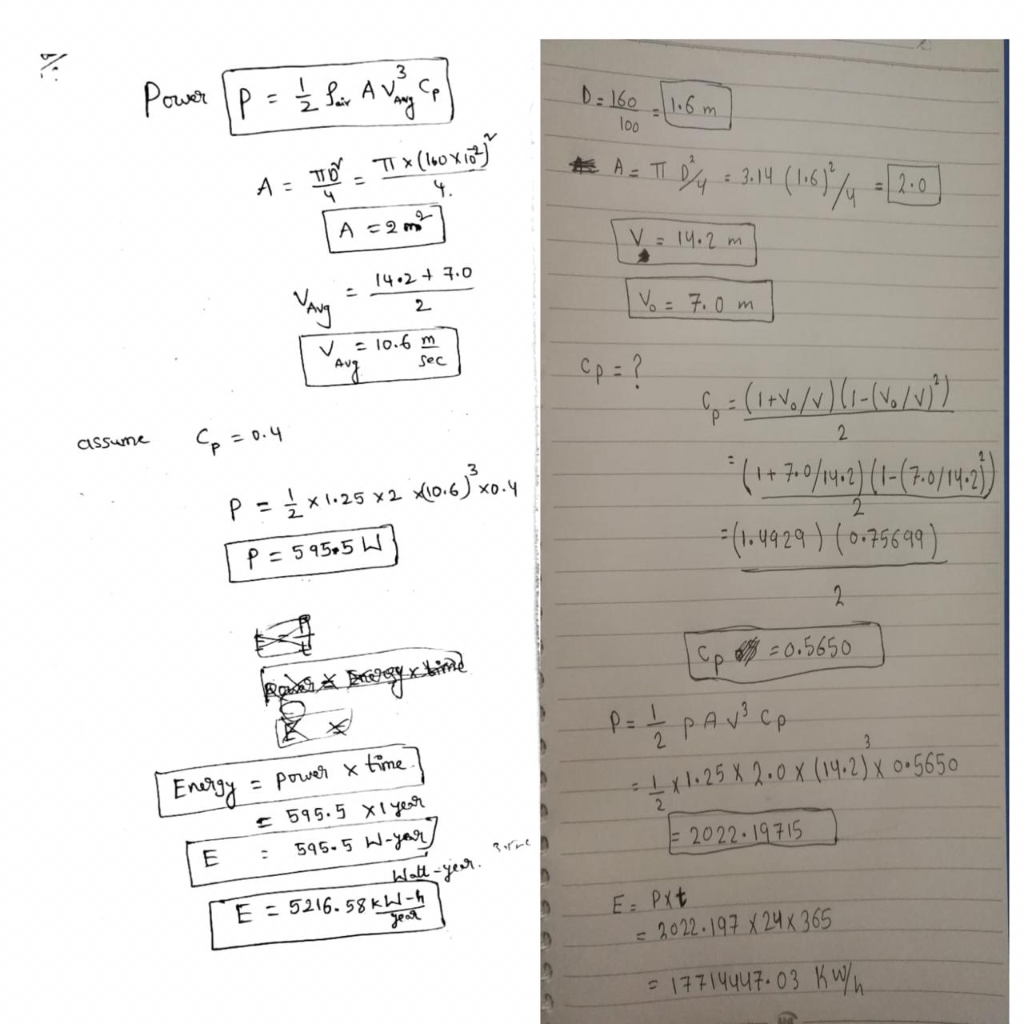 Power P = 1/2 ρair A V³Avg Cp
A = πD²/4 = π×(160×10⁻²)²/4.
A = 2 m²
VAvg = 14.2 + 7.0 / 2
VAvg = 10.6 m/sec
assume Cp = 0.4
P = 1/2 × 1.25 × 2 × (10.6)³ × 0.4
P = 595.5 W
Power = Energy × time
Energy = power × time.
= 595.5 × 1 year
E = 595.5 W-year
Watt-year.
E = 5216.58 kW-h/year
D = 160/100 = 1.6 m
A = π D²/4 = 3.14 (1.6)²/4 = 2.0
V = 14.2 m
V₀ = 7.0 m
Cp = ?
Cp = (1+V₀/V)(1-(V₀/V)²)/2
= (1+7.0/14.2)(1-(7.0/14.2)²)/2
= (1.4929)(0.75699)/2
Cp = 0.5650
P = 1/2 ρ A V³ Cp
= 1/2 × 1.25 × 2.0 × (14.2)³ × 0.5650
= 2022.19715
E = P×t
= 2022.197 × 24 × 365
= 17714447.03 KW/h